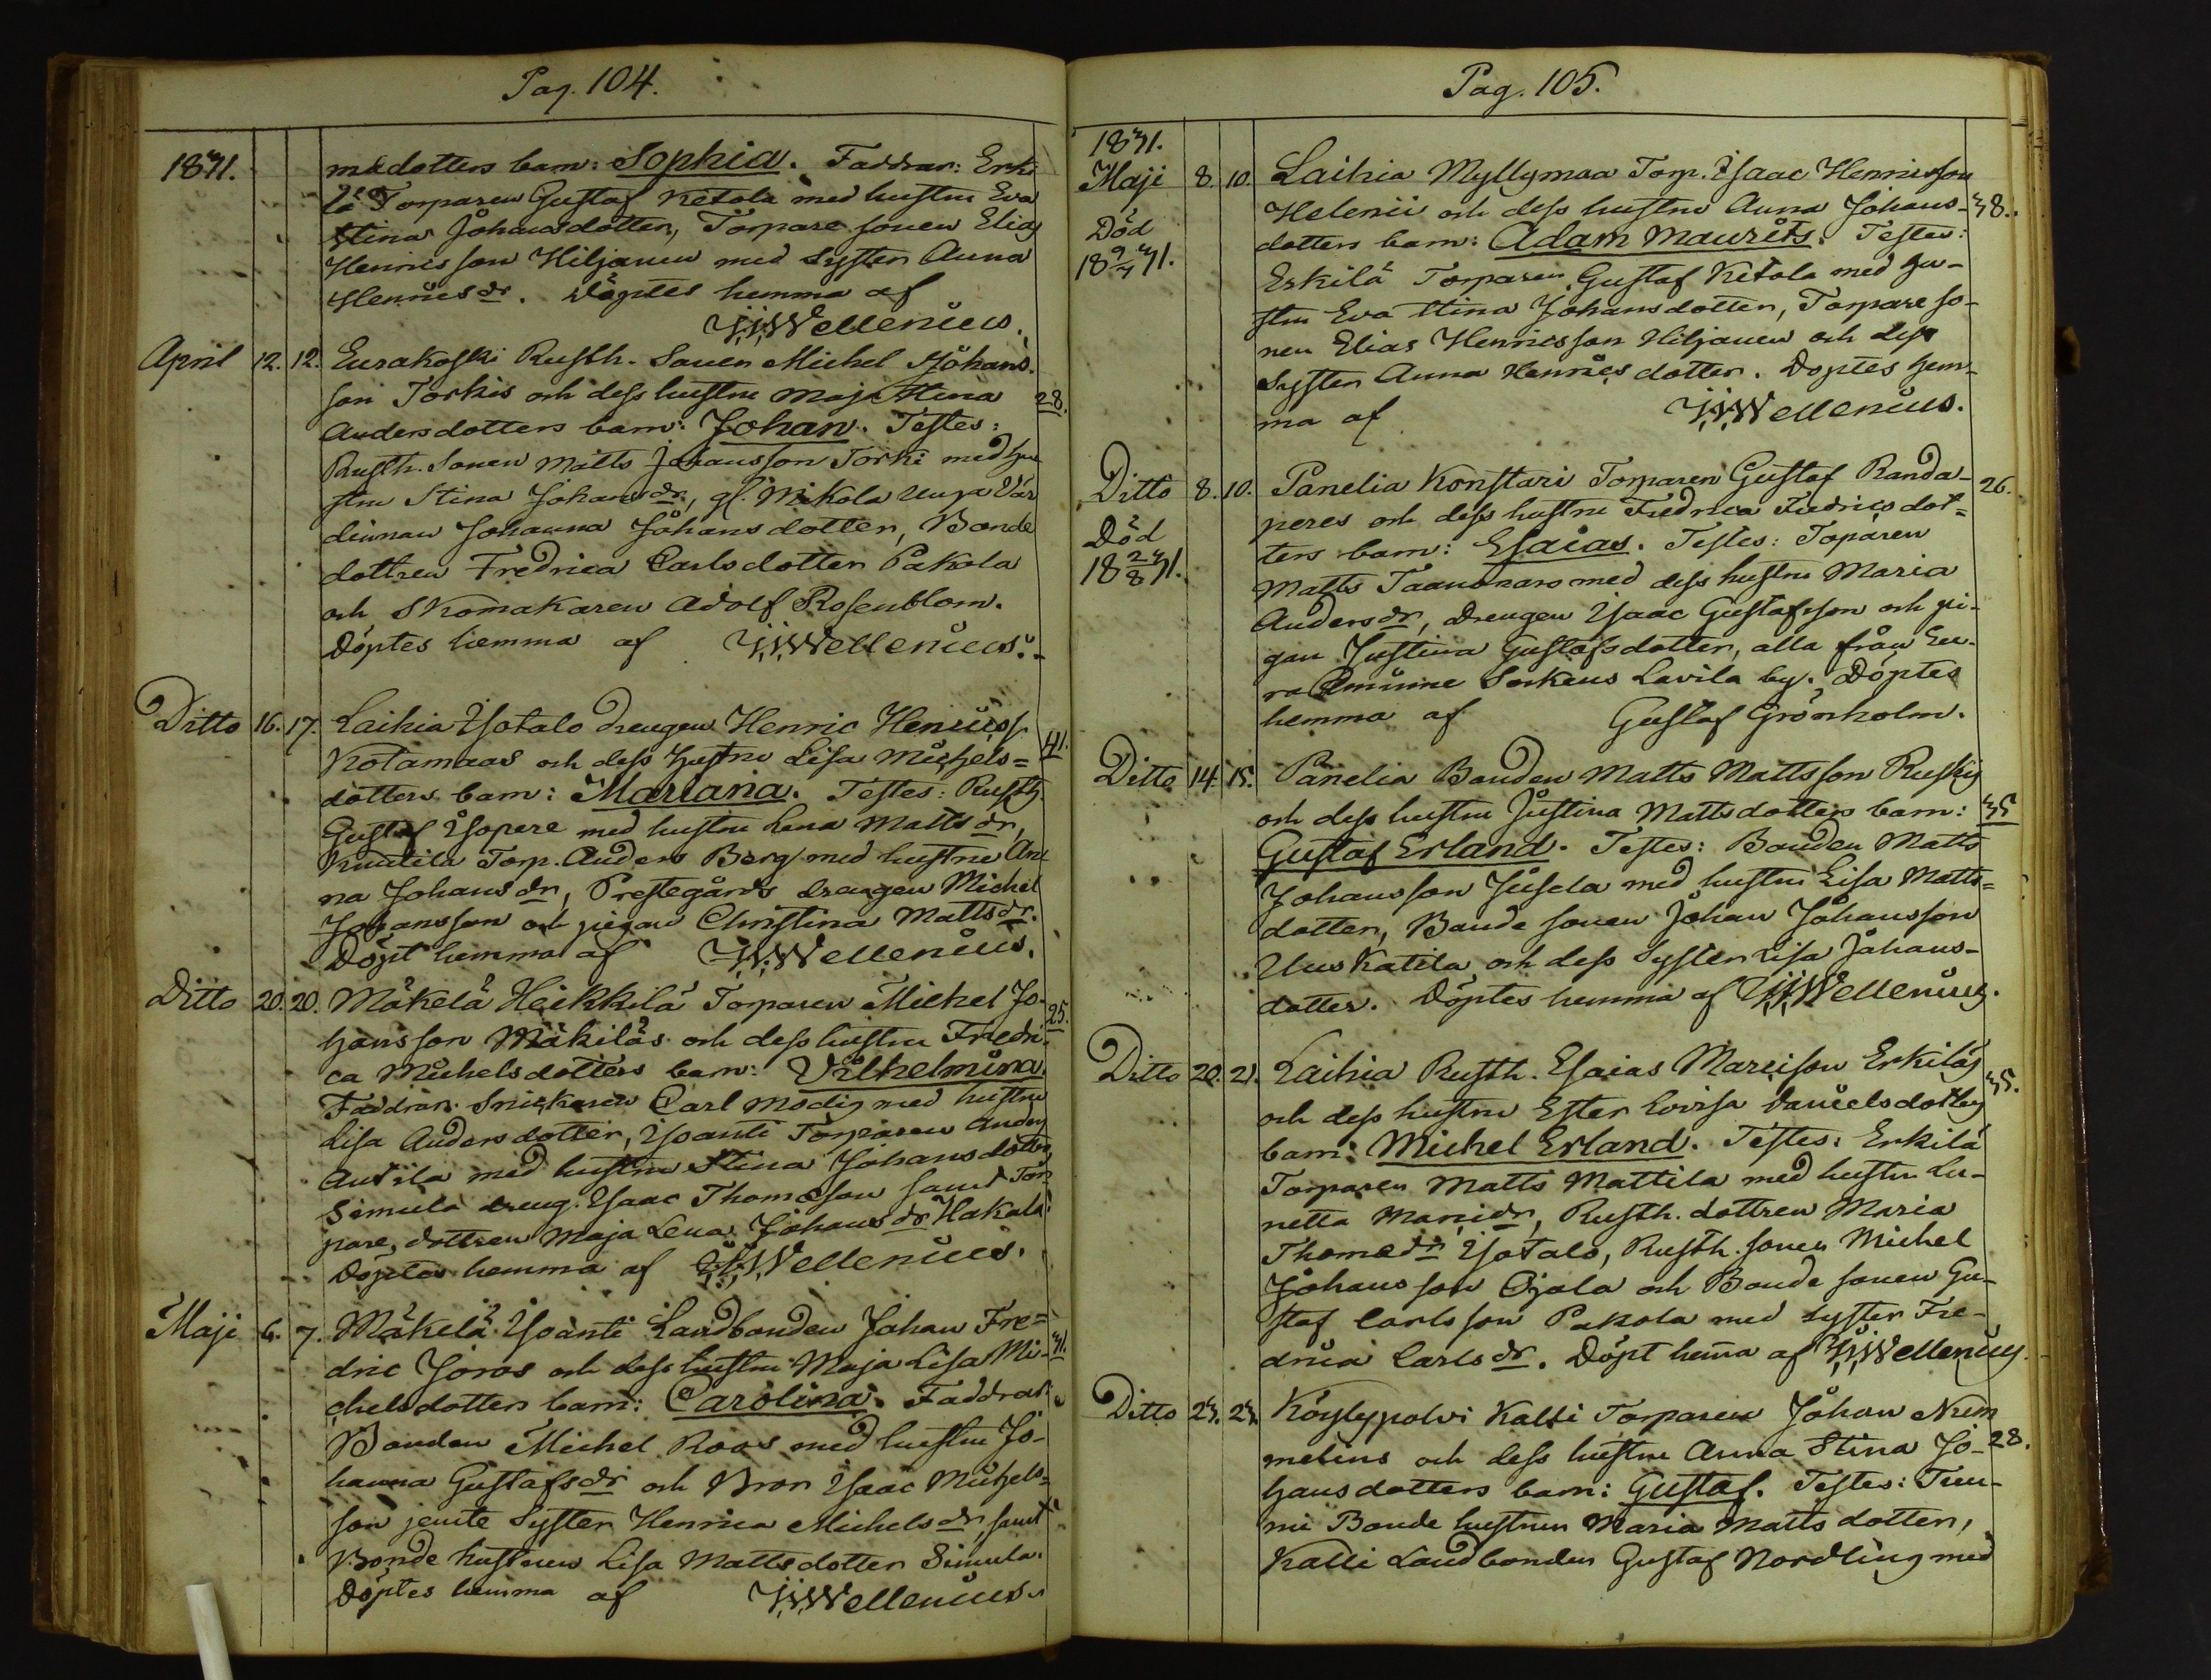 Pag. 104.
1871.
madotters barn: Sophia. Faddrar: Erki
lä Torparen Gustaf Ketola med hustru Eva
Stina Johansdotter, Torpare sonen Elias
Henricsson Hiljanen med Syster Anna
Henricsdr. Döptes hemma af
Wellenius.
April 12. 12. Eurakoski Rusth. Sonen Michel Johans
son Torkis och dess hustru Maja Stina 28.
Andersdotters barn: Johan. Testes:
Rusth. Sonen Matts Johansson Torki med hu
stru Stina Johansdr, gl. Mikola unga Vär
dinnan Johanna Johansdotter, Bonde
dottren Fredrica Carlsdotter Pakola
och Skomakaren Adolf Rosenblom.
Döptes hemma af Wellenius.
Ditto 16. 17. Laihia Isotalo drengen Henric Henricss
Kotamaas och dess hustru Lisa Michels= 41.
dotters barn: Mariana. Testes: Rusth.
Gustaf Isopere med hustru Lena Mattsdr,
Knutila Torp. Anders Berg med hustru An
na Johansdr, Prestegårds drengen Michel
Johansson och pigan Christina Mattsdr.
Döpt hemma af Wellenius.
Ditto 20. 20. Mäkelä Heikkilä Torparen Michel Jo-
hansson Mäkiläs och dess hustru Fredri- 25.
ca Michelsdotters barn: Vilhelmina.
Faddrar: Snickaren Carl Modig med hustru
Lisa Andersdotter, Isoanti Torparen Anders
Antila med hustru Stina Johansdotter,
Simula dreng. Isaac Thomasson samt Tor
pare, dottren Maja Lena Johansdr Hakala.
Döptes hemma af Wellenius.
Maji 6. 7. Mäkelä Isoanti Landbonden Johan Fre=
dric Joros och dess hustru Maja Lisa Mi- 31.
chelsdotters barn: Carolina. Faddrar:
Bonden Michel Roos med hustru Jo-
hanna Gustafsdr och Bror Isaac Michels=
son jemte Syster Henrica Michelsdr samt
Bonde hustrun Lisa Mattsdotter Simula.
Döptes hemma af Wellenius.
Pag. 105.
1871.
Maji 8. 10. Laihia Myllymaa Torp. Isaac Henricsson
Helenii och dess hustru Anna Johans- 38.
Död dotters barn: Adam Maurits. Testes:
18 9/7 71. Erkilä Torparen Gustaf Ketola med hu-
stru Eva Stina Johansdotter, Torpare so-
nen Elias Henricsson Hiljanen och dess
Syster Anna Henricsdotter. Döptes hem-
ma af Wellenius.
Ditto 8. 10. Panelia Konstari Torparen Gustaf Randa- 26.
peres och dess hustru Fredrica Fredricsdot=
Död ters barn: Esaias. Testes: Toparen
18 2/8 71. Matts med dess hustru Maria
Andersdr, drengen Isaac Gustafsson och pi-
gan Justina Gustafsdotter, alla från Eu-
ra Åminne Sokens Lavila by. Döptes
hemma af Gustaf Grönholm.
Ditto 14. 15. Panelia Bonden Matts Mattsson Ruskis
och dess hustru Justina Mattsdotters barn: 35
Gustaf Erland. Testes: Bonden Matts
Johansson Jusela med hustru Lisa Matts=
dotter, Bonde sonen Johan Johansson
Uus Katila och dess Syster Lisa Johans-
dotter. Döptes hemma af Wellenius.
Ditto 20. 21. Laihia Rusth. Esaias Marcison Erkiläs
och dess hustru Ester Lovisa Danielsdotters 35.
barn: Michel Erland. Testes: Erkilä
Torparen Matts Mattila med hustru Lu-
netta dr, Rusth. dottren Maria
Thomædr Isotalo, Rusth. sonen Michel
Johansson Ojala och Bonde sonen Gu-
staf Carlsson Pakola med syster Fre-
drica Carlsdr. Döpt hemma af Wellenius
Ditto 23. 23. Köylypolvi Kalli Torparen Johan Num
melins och dess hustru Anna Stina Jo- 28.
hansdotters barn: Gustaf. Testes: Tuu-
mi Bonde hustrun Maria Mattsdotter,
Kalli Landbonden Gustaf Nordling med